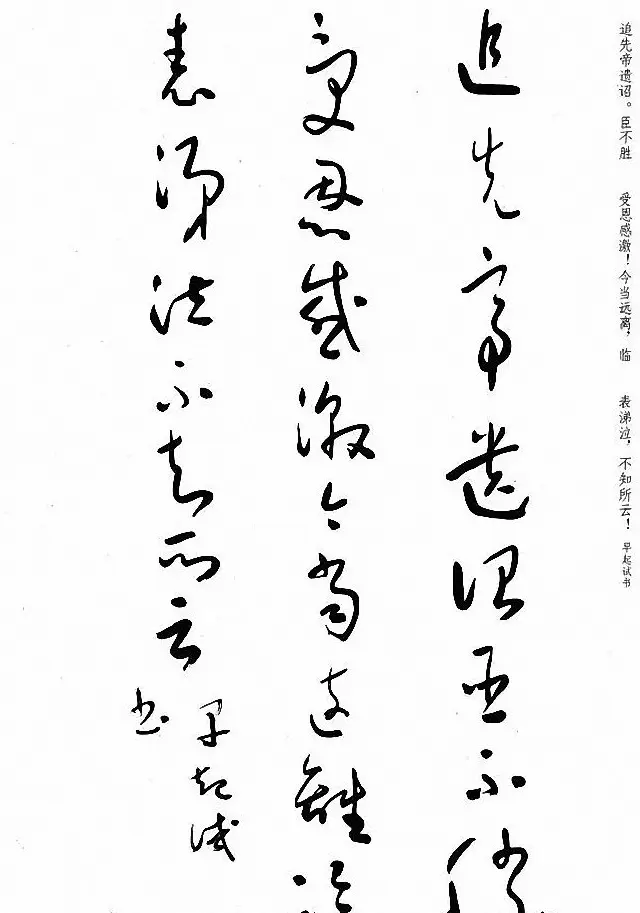 追先帝遗诏。臣不胜 受恩感激！今当远离，临 表涕泣，不知所云！ 早起试书
追先帝遗诏臣不胜
受恩感激今当远离临
表涕泣不知所云
早起试
书